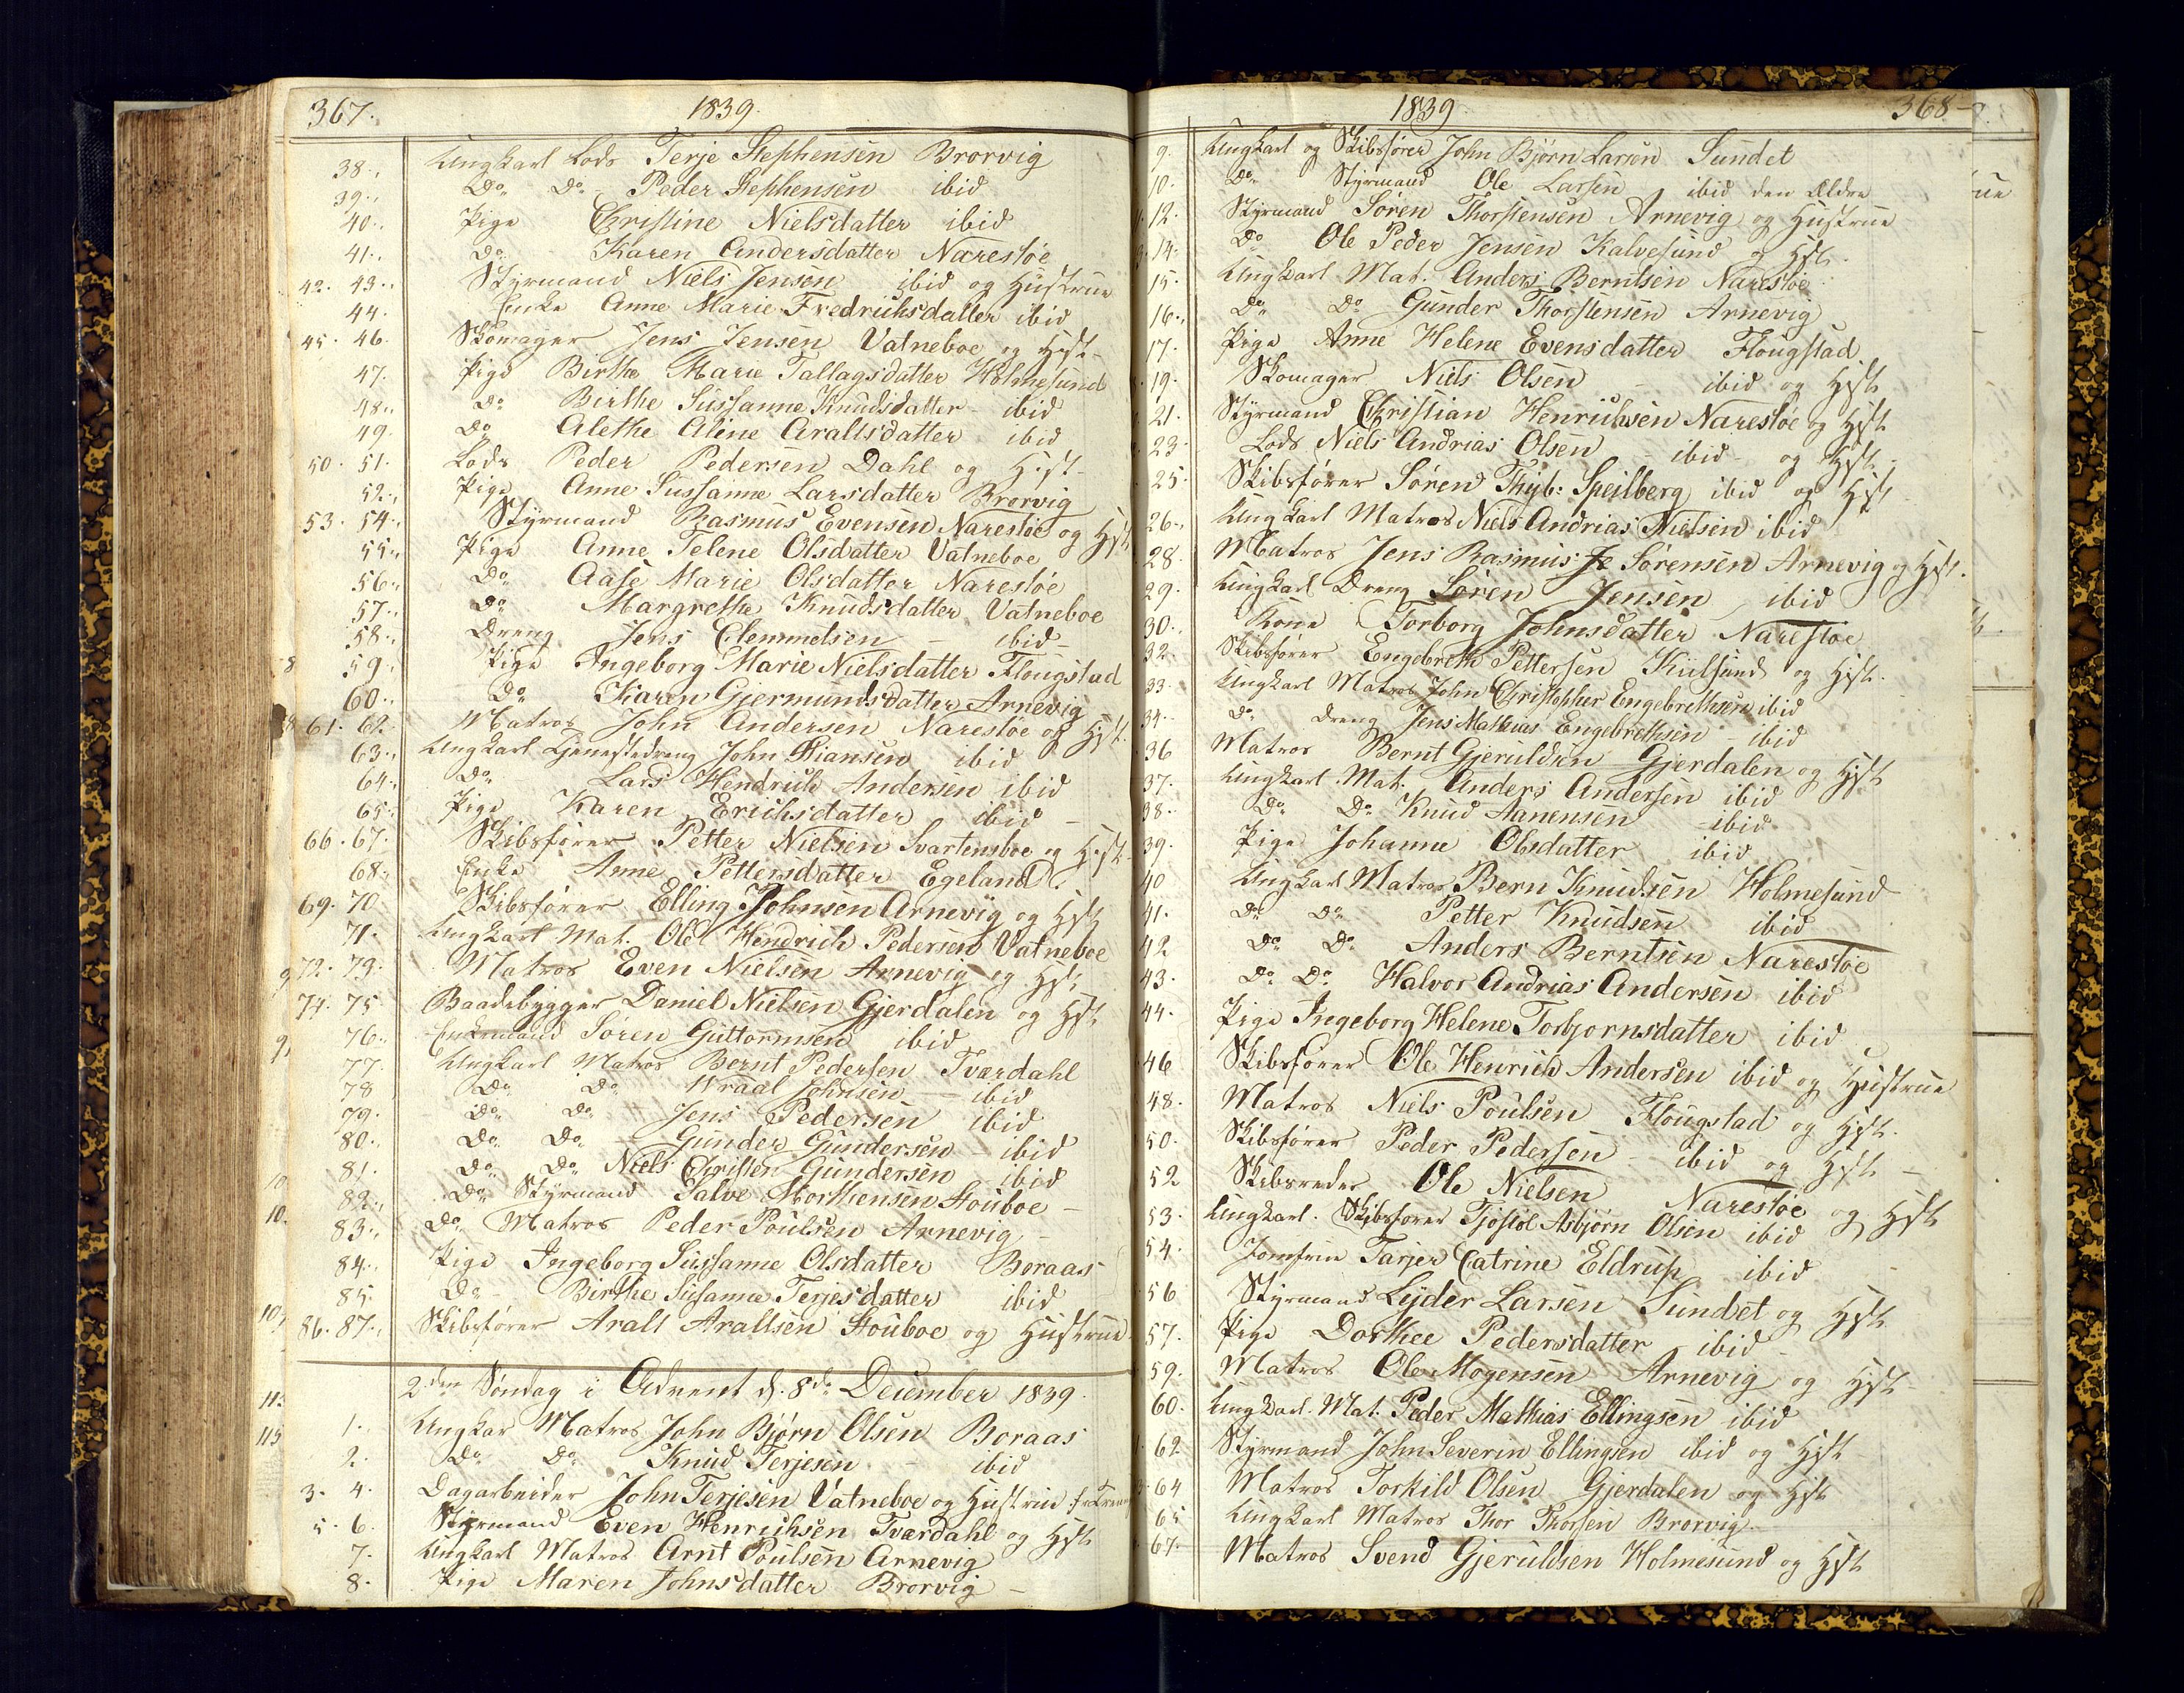 367. 1839.
38. Ungkarl Lods Terje Stephensen Brorvig
39. Do Do Peder Stephensen ibid
40. Pige Christine Nielsdatter ibid
41. Do Karen Andersdatter Narestøe
42. 43. Styrmand Niels Jensen ibid og Hustrue
44. Enke Anne Marie Fredrichsdatter ibid
45. 46. Skomager Jens Jensen Vatneboe og Hust.
47. Pige Birthe Marie Tallagsdatter Holmesund
48. Do Birthe Sussanne Knudsdatter ibid
49. Do Alethe Aline Arallsdatter ibid
50. 51. Lods Peder Pedersen Dahl og Hust.
52. Pige Anne Sussanne Larsdatter Brorvig
53. 54. Styrmand Rasmus Evensen Narestøe og Hust
55. Pige Anne Telene Olsdatter Vatneboe
56. Do Aase Marie Olsdatter Narestøe
57. Do Margrethe Knudsdatter Vatneboe
58. Dreng Jens Clemmetsen – ibid –
59. Pige Ingeborg Marie Nielsdatter Flougstad
60. Do Karen Gjermundsdatter Arnevig
61. 62. Matros John Andersen Narestøe og Hust.
63. Ungkarl Tjenestedreng John ibid
64. Do Lars Hendrich Andersen ibid
65. Pige Karen Erichsdatter ibid –
66. 67. Skibsfører Petter Nielsen Svartensboe og Hust
68. Enke Anne Pettersdatter Egeland
69. 70. Skibsfører Elling Johnsen Arnevig og Hust
71. Ungkarl Mat. Ole Hendrich Pedersen Vatneboe
72. 73. Matros Even Nielsen Arnevig og Hust
74. 75 Baadebygger Daniel Nielsen Gjerdalen og Hust
76. Enkemand Søren Guttormsen ibid
77. Ungkarl Matros Bernt Pedersen Tvardahl
78 Do Do Wraal Johnsen – ibid
79. Do Do Jens Pedersen ibid
80. Do Do Gunder Gundersen – ibid
81. Do Do Niels Christen Gundersen ibid
82. Do Styrmand Salve Morthensen Houboe –
83. Do Matros Peder Poulsen Arnevig –
84. Pige Ingeborg Sussanne Olsdatter Boraas
85. Do – Birthe Susanne Terjesdatter ibid
86. 87. Skibsfører Arall Arallsen Houboe og Hustrue
2den Søndag i Advent d. 8de December 1839.
1. Ungkar Matros John Bjørn Olsen Boraas
2. Do Do Knud Terjesen – ibid
3. 4. Dagarbeider John Terjesen Vatneboe og Hustrue
5. 6. Styrmand Even Henrichsen Tvardahl og Hust
7. Ungkarl Matros Arnt Poulsen Arnevig
8. Pige Maren Johnsdatter Brorvig –
1839 368
9. Ungkarl og Skibsfører John Bjørn Larsen Sundet
10. Do Styrmand Ole Larsen ibid den Ældre
12. Styrmand Soren Thorstensen Arnevig og Hustrue
14. Do Ole Peder Jensen Kalvesund og Hst.
15. Ungkarl Mat. Anders Berntsen Narestøe
16. Do Do Gunder Thorstensen Arnevig
17. Pige Anne Helene Evensdatter Flougstad
19. Skomager Niels Olsen – ibid og Hust
21. Styrmand Christian Henrichsen Narestøe og Hust
23. Lods Niels Andrias Olsen – ibid – og Hust
25. Skibsfører Søren Thyb: Speilberg ibid og Hust
26. Ungkarl Matros Niels Andrias Nielsen ibid
28. Matros Jens Rasmus Je Sørensen Arnevig og Hust.
29. Ungkarl Dreng Søren Jensen ibid
30. Kone Torborg Johnsdatter Narestoe
32. Skibsfører Engebreth Pettersen Kielsund og Hust.
33. Ungkarl Matros John Christopher Engebrethsen ibid
34. Do Dreng Jens Mathias Engebrethsen – ibid
36 Matros Bernt Gjeruldsen Gjerdalen og Hust
37. Ungkarl Mat. Anders Andersen ibid
38. Do Do Knud Aanensen – ibid
39. Pige Johanne Olsdatter ibid
40 Ungkarl Matros Bern Knudsen Holmesund
41. Do Do Petter Knudsen ibid
42 Do Do Anders Berntsen Narestøe
43. Do Do Halvor Andrias Andersen ibid
44. Pige Ingeborg Helene Torbjornsdatter ibid
46 Skibsfører Ole Henrich Andersen ibid og Hustrue
48. Matros Niels Poulsen Flougstad og Hust.
50. Skibsfører Peder Pedersen – ibid og Hust –
52 Skibsreder Ole Nielsen Narestøe og Hust
53. Ungkarl. Skibsfører Tjøstol Asbjørn Olsen ibid
54. Jomfrue Tarjer Catrine Eldrup ibid
56 Styrmand Lyder Larsen Sundet og Hust
57. Pige Dorthee Pedersdatter ibid
59. Matros Ole Mogensen Arnevig og Hust
60. Ungkarl. Mat. Peder Mathias Ellingsen ibid
62. Styrmand John Severin Ellingsen ibid og Hust
64 Matros Torkild Olsen Gjerdalen og Hust
65 Ungkarl Matros Thor Thorsen Brorvig
67. Matros Svend Gjeruldsen Holmesund og Hust